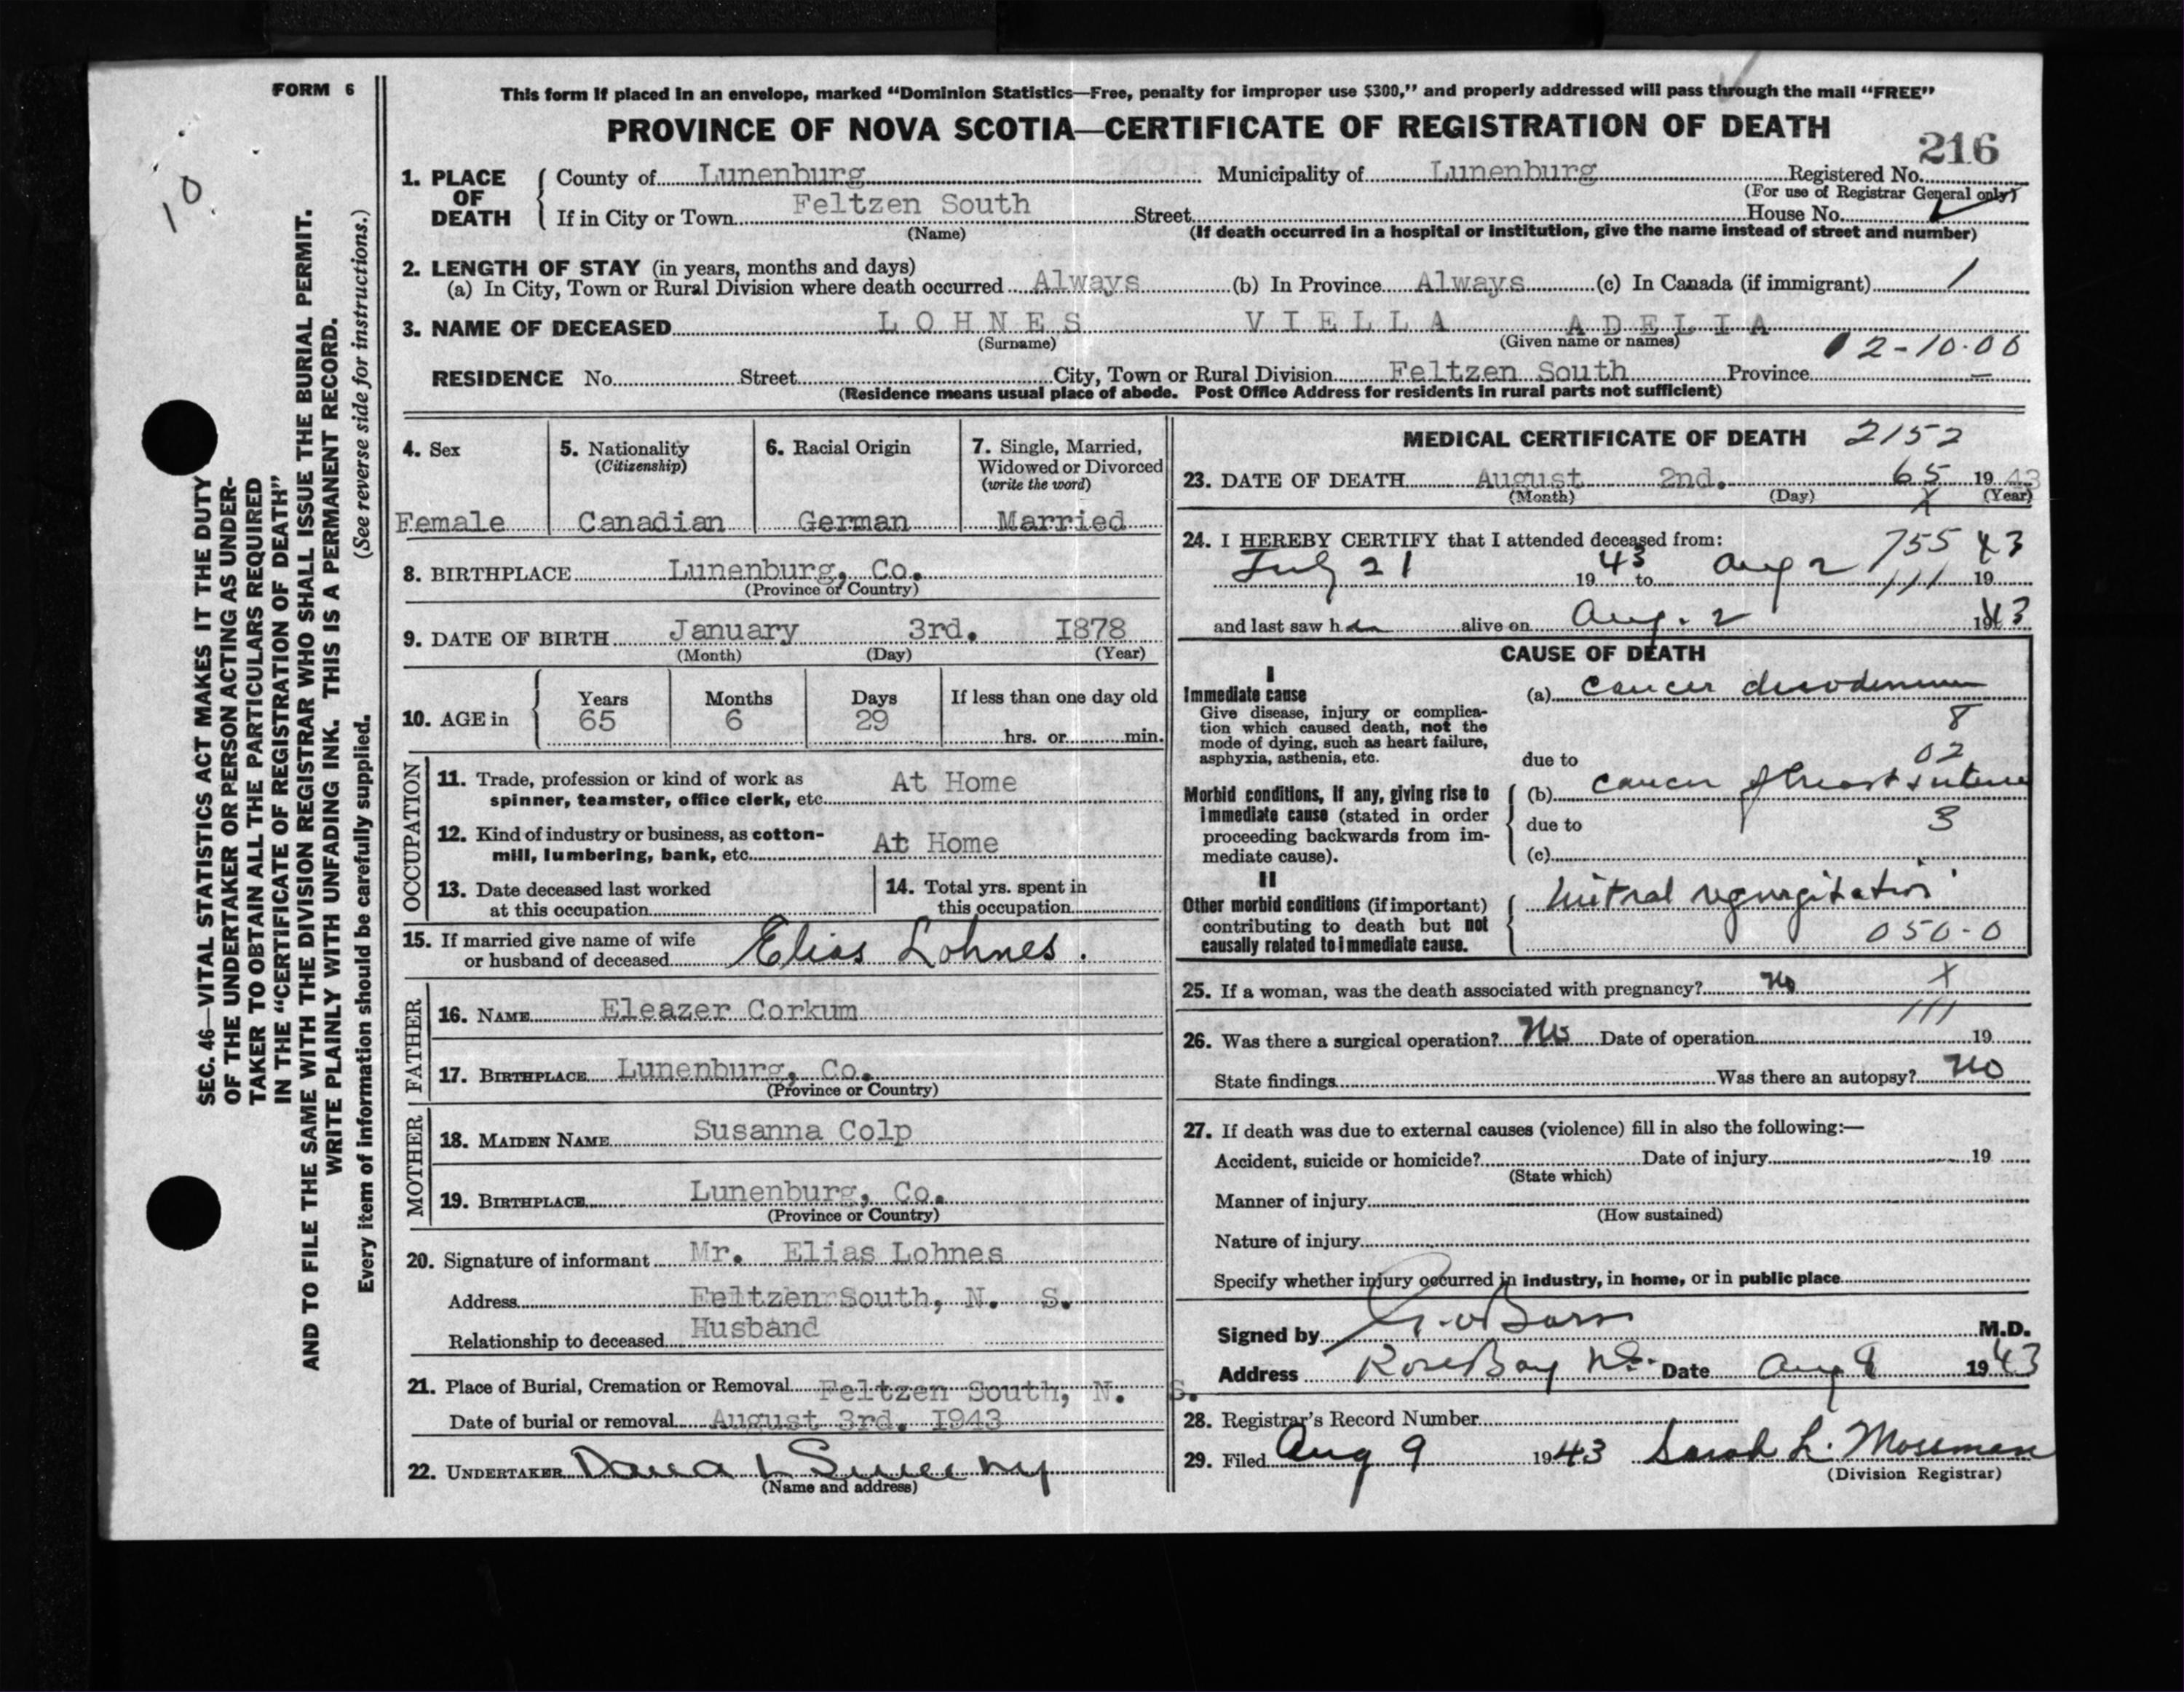 FORM 6
This form if placed in an envelope, marked “Dominion Statistics—Free, penalty for improper use $300,” and properly addressed will pass through the mail “FREE”
PROVINCE OF NOVA SCOTIA—CERTIFICATE OF REGISTRATION OF DEATH
216
10
SEC. 46—VITAL STATISTICS ACT MAKES IT THE DUTY
OF THE UNDERTAKER OR PERSON ACTING AS UNDER-
TAKER TO OBTAIN ALL THE PARTICULARS REQUIRED
IN THE “CERTIFICATE OF REGISTRATION OF DEATH”
AND TO FILE THE SAME WITH THE DIVISION REGISTRAR WHO SHALL ISSUE THE BURIAL PERMIT.
WRITE PLAINLY WITH UNFADING INK. THIS IS A PERMANENT RECORD.
Every item of information should be carefully supplied. (See reverse side for instructions.)
1. PLACE OF DEATH County of Lunenburg Municipality of Lunenburg Registered No.
(For use of Registrar General only)
If in City or Town Feltzen South Street House No.
(Name) (If death occurred in a hospital or institution, give the name instead of street and number)
2. LENGTH OF STAY (in years, months and days)
(a) In City, Town or Rural Division where death occurred Always (b) In Province Always (c) In Canada (if immigrant) /
3. NAME OF DECEASED LOHNES VIELLA ADELIA
(Surname) (Given name or names)
2-10-00
RESIDENCE No. Street City, Town or Rural Division Feltzen South Province
(Residence means usual place of abode. Post Office Address for residents in rural parts not sufficient)
4. Sex 5. Nationality 6. Racial Origin 7. Single, Married,
(Citizenship) Widowed or Divorced
(write the word)
Female Canadian German Married
8. BIRTHPLACE Lunenburg, Co.
(Province or Country)
9. DATE OF BIRTH January 3rd. 1878
(Month) (Day) (Year)
10. AGE in Years Months Days If less than one day old
65 6 29
hrs. or min.
OCCUPATION
11. Trade, profession or kind of work as
spinner, teamster, office clerk, etc. At Home
12. Kind of industry or business, as cotton-
mill, lumbering, bank, etc. At Home
13. Date deceased last worked
at this occupation
14. Total yrs. spent in
this occupation
15. If married give name of wife
or husband of deceased Elias Lohnes.
FATHER
16. NAME Eleazer Corkum
17. BIRTHPLACE Lunenburg, Co.
(Province or Country)
MOTHER
18. MAIDEN NAME Susanna Colp
19. BIRTHPLACE Lunenburg, Co.
(Province or Country)
20. Signature of informant Mr. Elias Lohnes
Address Feltzen South, N. S.
Relationship to deceased Husband
21. Place of Burial, Cremation or Removal Feltzen South, N. S.
Date of burial or removal August 3rd. 1943
22. UNDERTAKER Dana L Sweeny
(Name and address)
MEDICAL CERTIFICATE OF DEATH 2152
23. DATE OF DEATH August 2nd. 65 1943
(Month) (Day) (Year)
X
24. I HEREBY CERTIFY that I attended deceased from:
755
July 21 1943 to Aug 2 1943
111
and last saw her alive on Aug. 2 1943
CAUSE OF DEATH
I
Immediate cause
Give disease, injury or complica-
tion which caused death, not the
mode of dying, such as heart failure,
asphyxia, asthenia, etc.
(a) Cancer duodenum
8
02
due to
Morbid conditions, if any, giving rise to
immediate cause (stated in order
proceeding backwards from im-
mediate cause).
(b) Cancer of breast & uterus
due to 3
(c)
II
Other morbid conditions (if important)
contributing to death but not
causally related to immediate cause.
Mitral regurgitation
050-0
25. If a woman, was the death associated with pregnancy? No X
111
26. Was there a surgical operation? No Date of operation 19
State findings Was there an autopsy? No
27. If death was due to external causes (violence) fill in also the following:—
Accident, suicide or homicide? Date of injury 19
(State which)
Manner of injury
(How sustained)
Nature of injury
Specify whether injury occurred in industry, in home, or in public place
Signed by M.D.
Address Rose Bay N.S. Date Aug 8 1943
28. Registrar’s Record Number
29. Filed Aug 9 1943 Sarah L. Mossman
(Division Registrar)